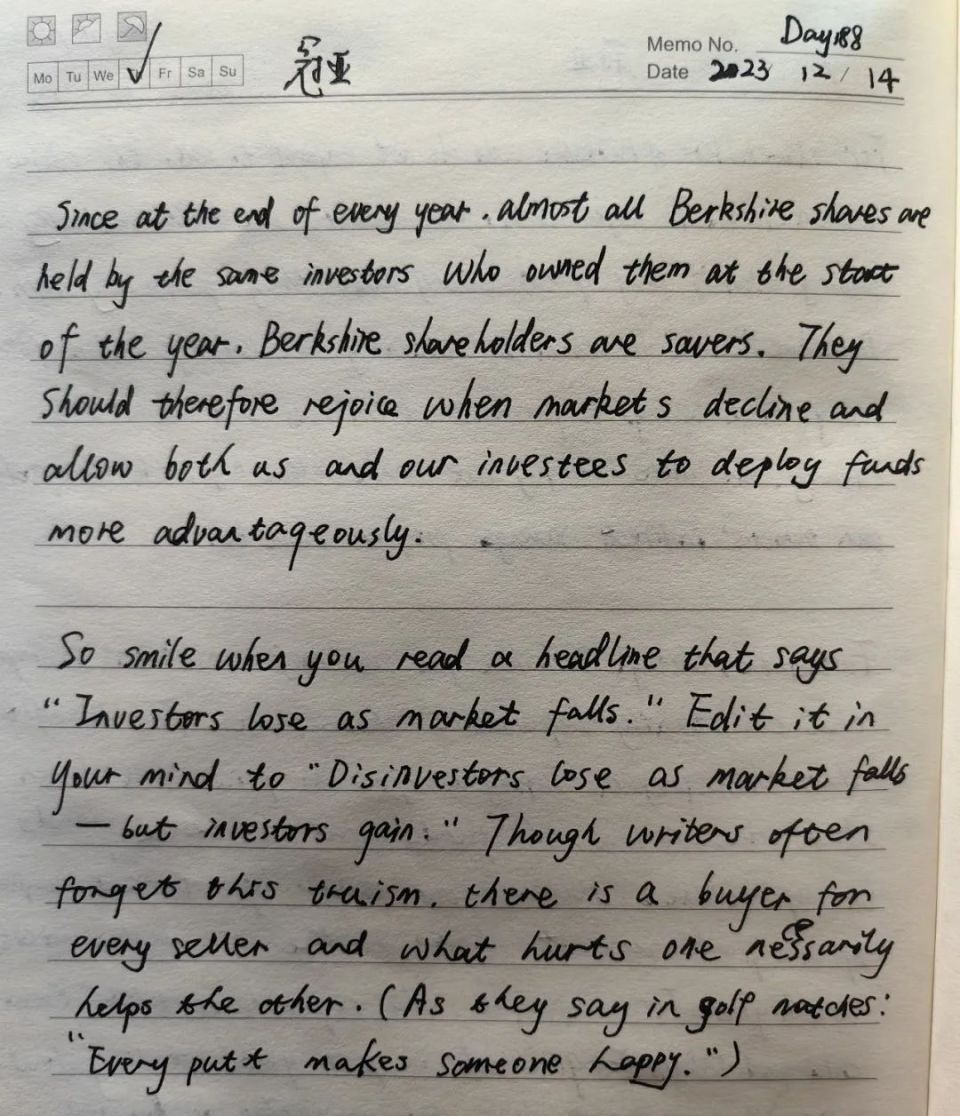 Memo No. Day188
Mo Tu We Fr Sa Su
冠亚
Date 2023 12 / 14
Since at the end of every year, almost all Berkshire shares are
held by the same investors who owned them at the start
of the year, Berkshire shareholders are savers. They
should therefore rejoice when markets decline and
allow both us and our investees to deploy funds
more advantageously.
So smile when you read a headline that says
"Investors lose as market falls." Edit it in
your mind to "Disinvestors lose as market falls
— but investors gain." Though writers often
forget this truism, there is a buyer for
every seller and what hurts one necessarily
helps the other. (As they say in golf matches:
"Every putt makes someone happy.")